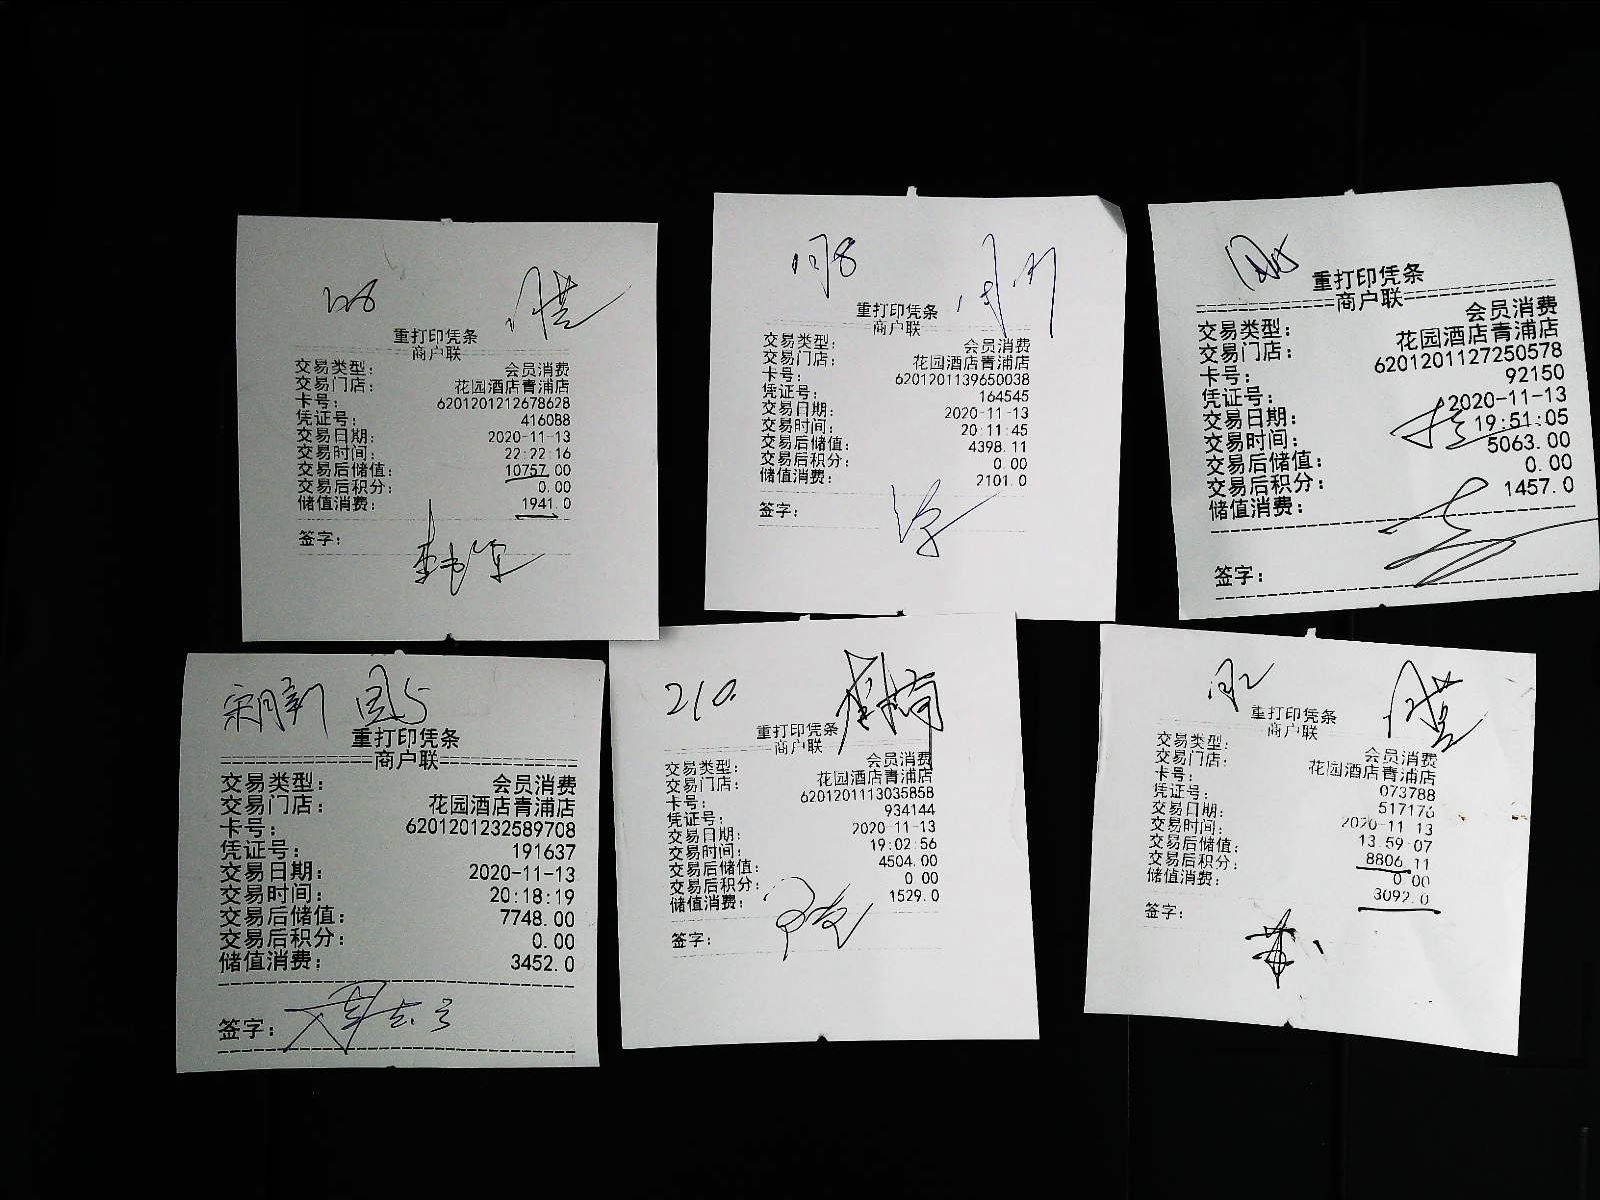 重打印凭条
商户联
交易类型： 会员消费
交易门店： 花园酒店青浦店
卡号： 6201201212678628
凭证号： 416088
交易日期： 2020-11-13
交易时间： 22:22:16
交易后储值： 10757.00
交易后积分： 0.00
储值消费： 1941.0
签字：
重打印凭条
商户联
交易类型： 会员消费
交易门店： 花园酒店青浦店
卡号： 6201201139650038
凭证号： 164545
交易日期： 2020-11-13
交易时间： 20:11:45
交易后储值： 4398.11
交易后积分： 0.00
储值消费： 2101.0
签字：
重打印凭条
商户联
交易类型： 会员消费
交易门店： 花园酒店青浦店
卡号： 6201201127250578
凭证号： 92150
交易日期： 2020-11-13
交易时间： 19:51:05
交易后储值： 5063.00
交易后积分： 0.00
储值消费： 1457.0
签字：
重打印凭条
商户联
交易类型： 会员消费
交易门店： 花园酒店青浦店
卡号： 6201201232589708
凭证号： 191637
交易日期： 2020-11-13
交易时间： 20:18:19
交易后储值： 7748.00
交易后积分： 0.00
储值消费： 3452.0
签字：
210.
重打印凭条
商户联
交易类型： 会员消费
交易门店： 花园酒店青浦店
卡号： 6201201113035858
凭证号： 934144
交易日期： 2020-11-13
交易时间： 19:02:56
交易后储值： 4504.00
交易后积分： 0.00
储值消费： 1529.0
签字：
重打印凭条
商户联
交易类型： 会员消费
交易门店： 花园酒店青浦店
卡号： 073788
凭证号： 517176
交易日期： 2020-11-13
交易时间： 13:59:07
交易后储值： 8806.11
交易后积分： 0.00
储值消费： 3092.0
签字：